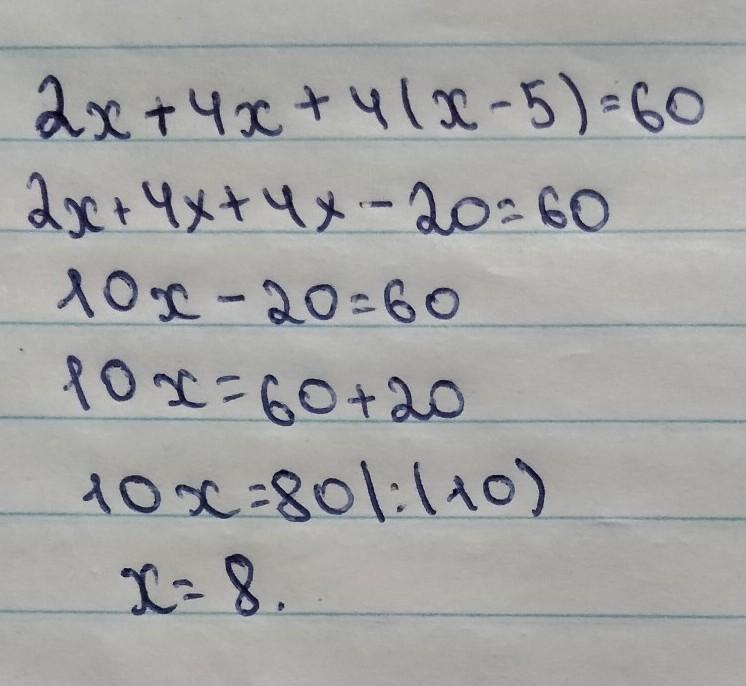 2x+4x+4(x-5)=60
2x+4x+4x-20=60
10x-20=60
10x=60+20
10x=80|:(10)
x=8.